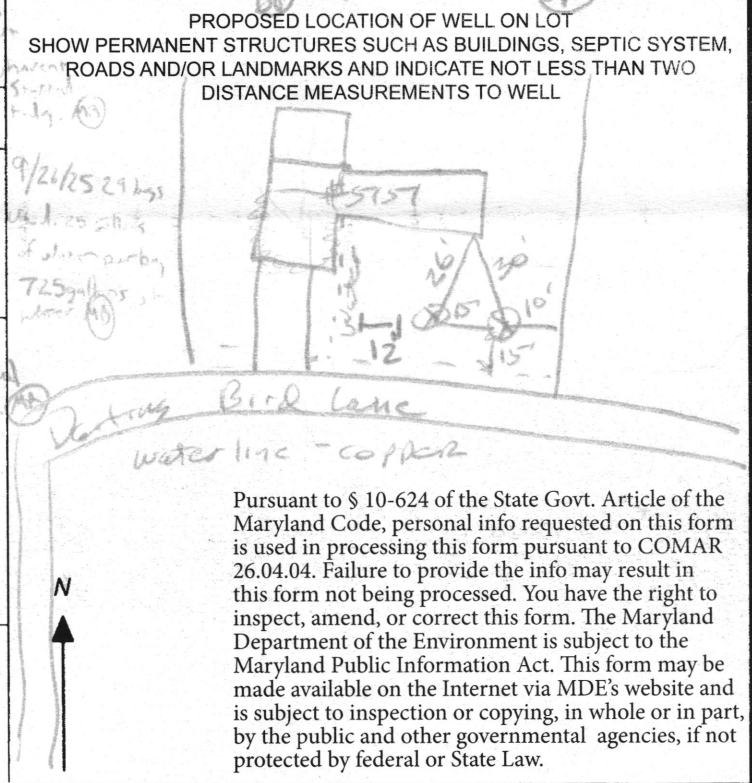 PROPOSED LOCATION OF WELL ON LOT
SHOW PERMANENT STRUCTURES SUCH AS BUILDINGS, SEPTIC SYSTEM,
ROADS AND/OR LANDMARKS AND INDICATE NOT LESS THAN TWO
DISTANCE MEASUREMENTS TO WELL
9/26/25 29 bags
25
of
725 gallons
#5757
26'
30'
15'
10'
12
15'
Darting Bird Lane
water line - copper
N
Pursuant to § 10-624 of the State Govt. Article of the
Maryland Code, personal info requested on this form
is used in processing this form pursuant to COMAR
26.04.04. Failure to provide the info may result in
this form not being processed. You have the right to
inspect, amend, or correct this form. The Maryland
Department of the Environment is subject to the
Maryland Public Information Act. This form may be
made available on the Internet via MDE's website and
is subject to inspection or copying, in whole or in part,
by the public and other governmental agencies, if not
protected by federal or State Law.